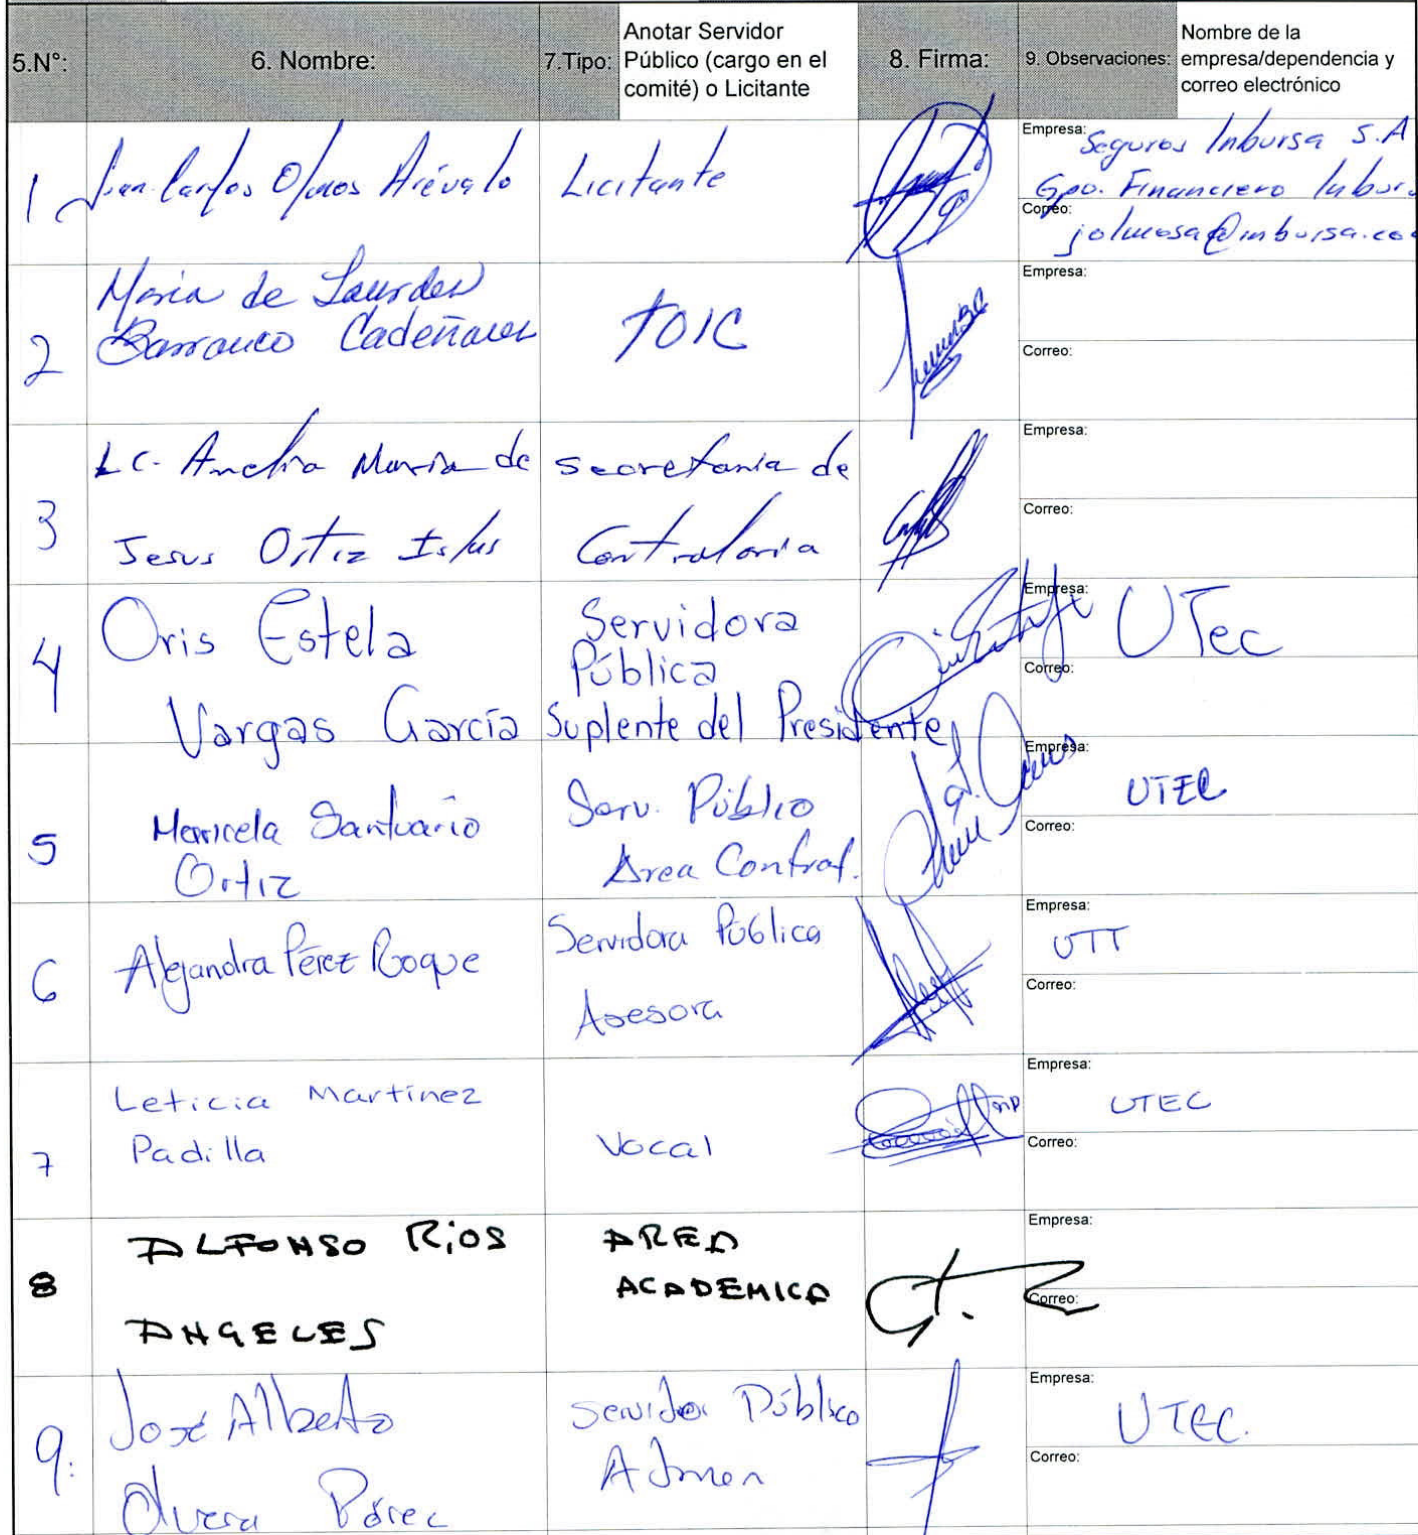 5.N°: 6. Nombre: 7.Tipo: Anotar Servidor Público (cargo en el comité) o Licitante 8. Firma: 9. Observaciones: Nombre de la empresa/dependencia y correo electrónico
1 Juan Carlos Olmos Arévalo Licitante
Empresa: Seguros Inbursa S.A
Gpo. Financiero Inbur
Correo:
jolmosa@inbursa.co
2 María de Lourdes
Barranco
TOIC
Empresa:
Correo:
3 L.C. Amelia María de
Jesus Ortiz Islas
Secretaría de
Contraloría
Empresa:
Correo:
4 Oris Estela
Vargas García
Servidora
Pública
Suplente del Presidente
Empresa: UTec
Correo:
5 Maricela Santuario
Ortiz
Serv. Público
Area Contrat.
Empresa:
UTEC
Correo:
6 Alejandra Pérez Roque
Servidora Pública
Asesora
Empresa:
UTT
Correo:
7 Leticia Martínez
Padilla
Vocal
Empresa:
UTEC
Correo:
8 ALFONSO Ríos
ANGELES
AREA
ACADEMICA
Empresa:
Correo:
9. José Alberto
Olvera Pérez
Servidor Público
Admon
Empresa:
UTEC.
Correo: